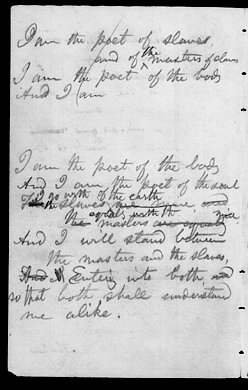 I am the poet of slaves,
and of the masters of slaves
I am the poet of the body
And I am
I am the poet of the body
And I am the poet of the soul
I go with the slaves of the earth
equally with the masters
And I will stand between
the masters and the slaves,
Entering into both, and
so that both shall understand
me alike.